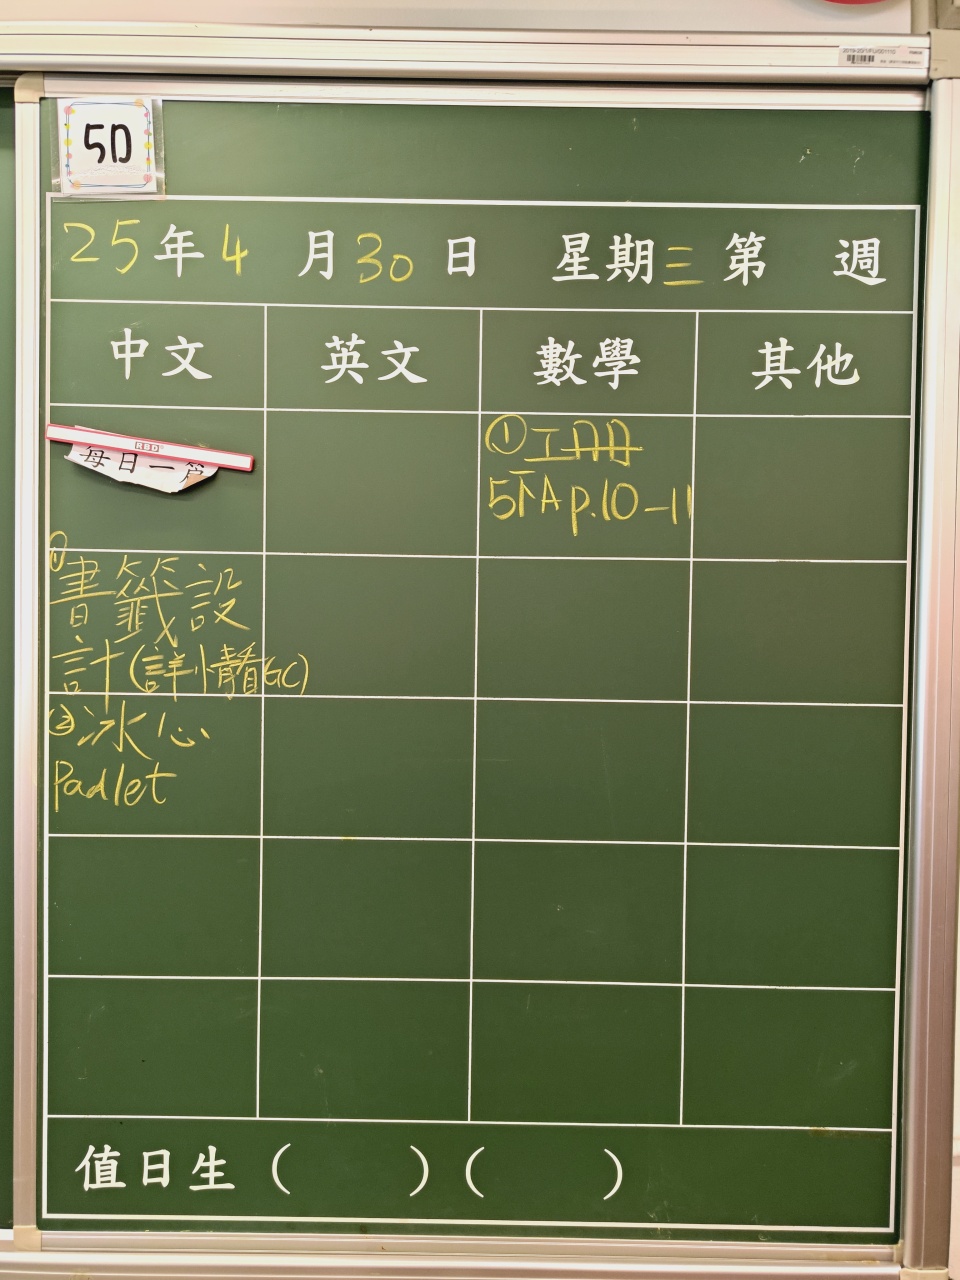 5D
25年4月30日 星期三 第 週
中文 英文 數學 其他
RSD
每日一篇
① 工冊
5下A p.10-11
①
書籤設
計(詳情看GC)
② 冰心
Padlet
值日生 ( ) ( )